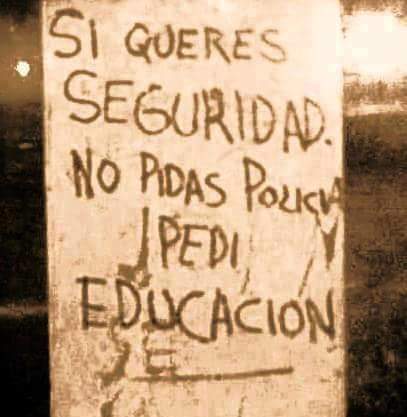 SI QUERES
SEGURIDAD.
NO PIDAS POLICIA
¡PEDI
EDUCACION